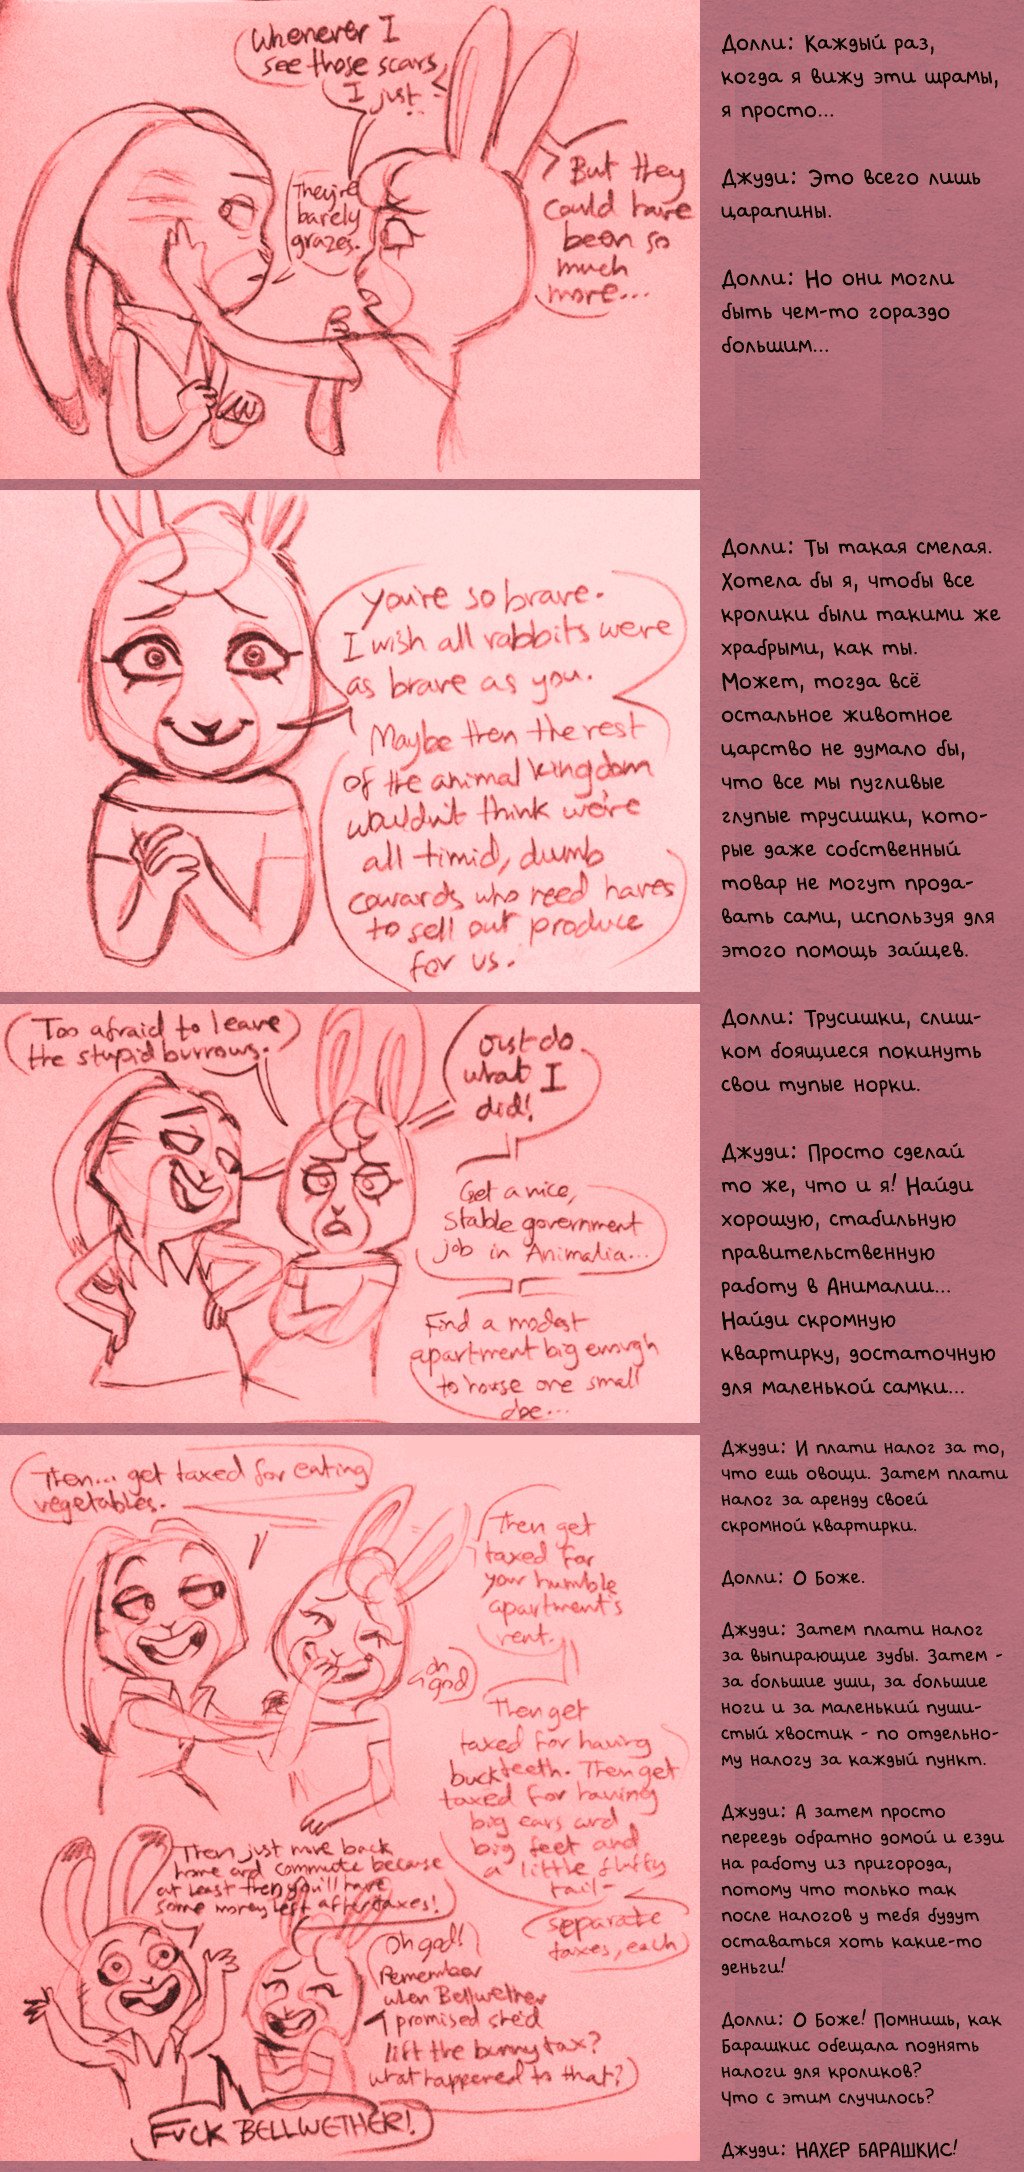 Whenever I
see those scars,
I just...
They're
barely
grazes.
But they
could have
been so
much
more...
Долли: Каждый раз,
когда я вижу эти шрамы,
я просто...
Джуди: Это всего лишь
царапины.
Долли: Но они могли
быть чем-то гораздо
большим...
You're so brave.
I wish all rabbits were
as brave as you.
Maybe then the rest
of the animal kingdom
wouldn't think we're
all timid, dumb
cowards who need hares
to sell our produce
for us.
Долли: Ты такая смелая.
Хотела бы я, чтобы все
кролики были такими же
храбрыми, как ты.
Может, тогда всё
остальное животное
царство не думало бы,
что все мы пугливые
глупые трусишки, кото-
рые даже собственный
товар не могут прода-
вать сами, используя для
этого помощь зайцев.
Too afraid to leave
the stupid burrows.
Just do
what I
did!
Get a nice,
stable government
job in Animalia...
Find a modest
apartment big enough
to house one small
doe...
Долли: Трусишки, слиш-
ком боящиеся покинуть
свои тупые норки.
Джуди: Просто сделай
то же, что и я! Найди
хорошую, стабильную
правительственную
работу в Анималии...
Найди скромную
квартирку, достаточную
для маленькой самки...
Then... get taxed for eating
vegetables.
Then get
taxed for
your humble
apartment's
rent.
oh
god
Then get
taxed for having
buckteeth. Then get
taxed for having
big ears and
big feet and
a little fluffy
tail-
separate
taxes, each
Then just move back
home and commute because
at least then you'll have
some money left after taxes!
Oh god!
Remember
when Bellwether
promised she'd
lift the bunny tax?
what happened to that?
FUCK BELLWETHER!
Джуди: И плати налог за то,
что ешь овощи. Затем плати
налог за аренду своей
скромной квартирки.
Долли: О Боже.
Джуди: Затем плати налог
за выпирающие зубы. Затем -
за большие уши, за большие
ноги и за маленький пуши-
стый хвостик - по отдельно-
му налогу за каждый пункт.
Джуди: А затем просто
переедь обратно домой и езди
на работу из пригорода,
потому что только так
после налогов у тебя будут
оставаться хоть какие-то
деньги!
Долли: О Боже! Помнишь, как
Барашкис обещала поднять
налоги для кроликов?
Что с этим случилось?
Джуди: НАХЕР БАРАШКИС!